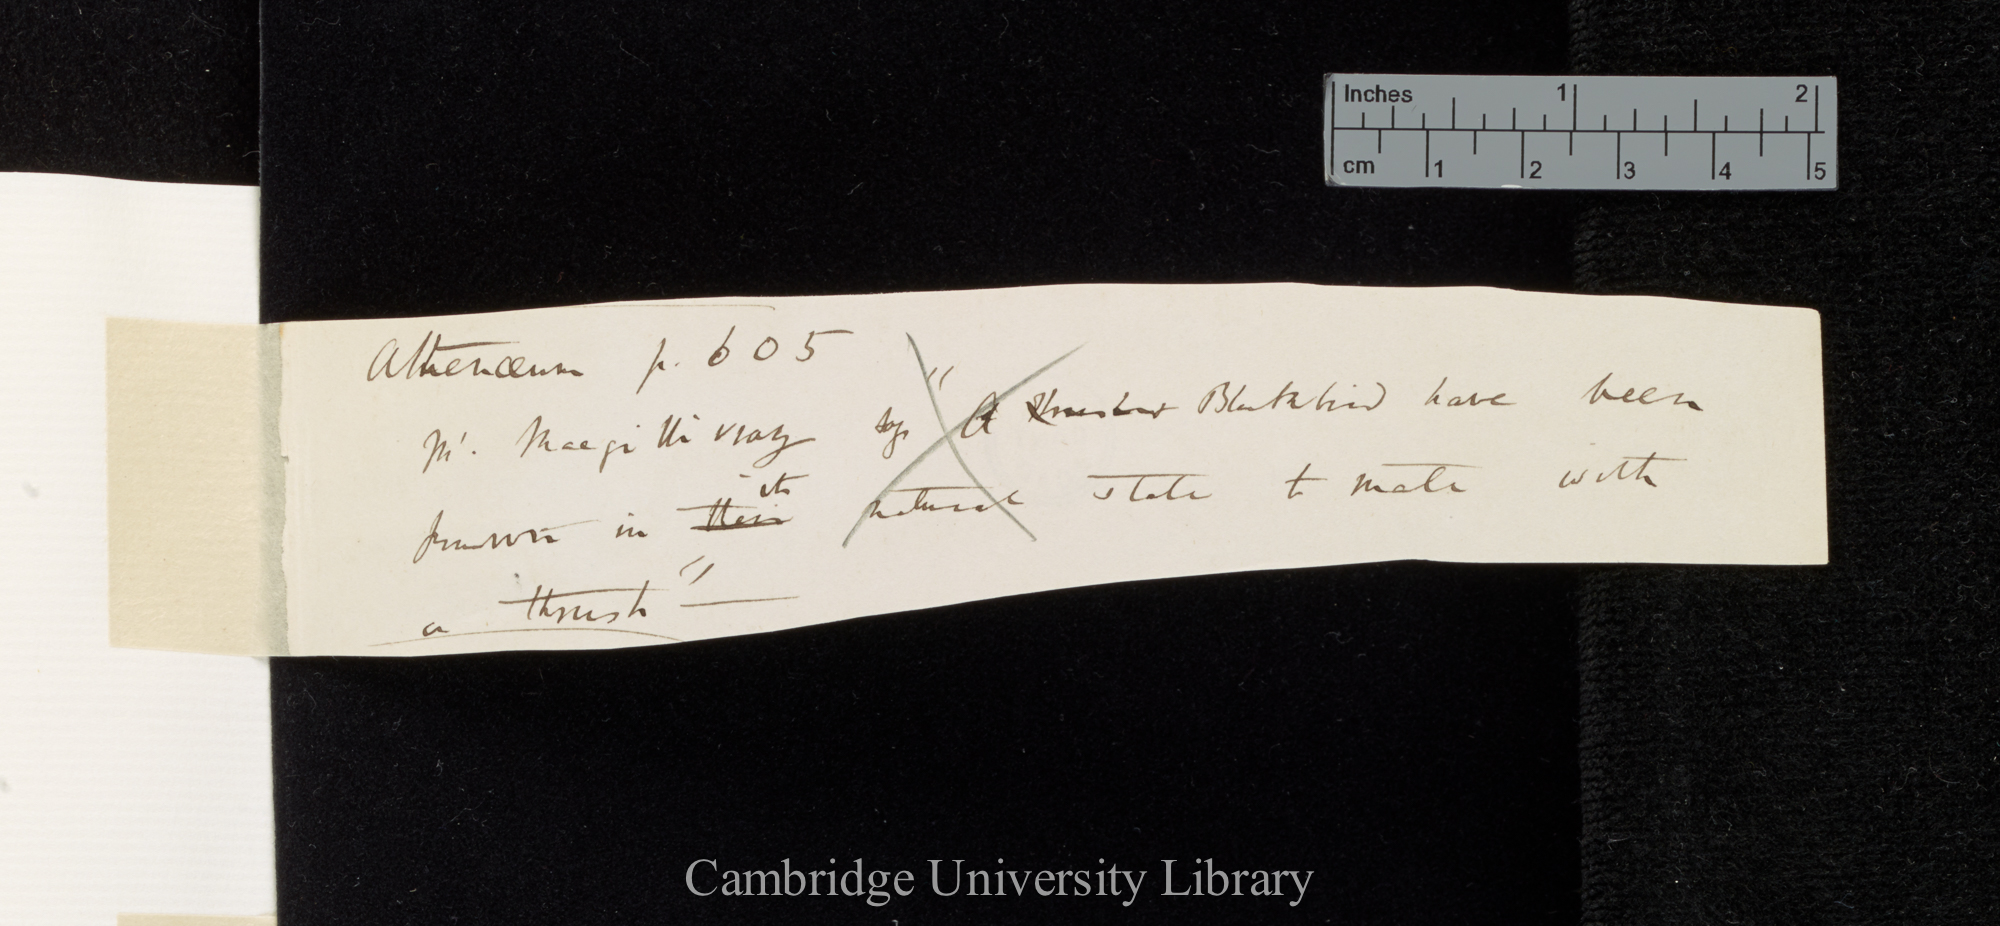 Inches 1 2
cm 1 2 3 4 5
Athenæum p. 605
Mr. Macgillivray says "A Thrushes Blackbird have been
known in their its natural state to mate with
a thrush" —
Cambridge University Library